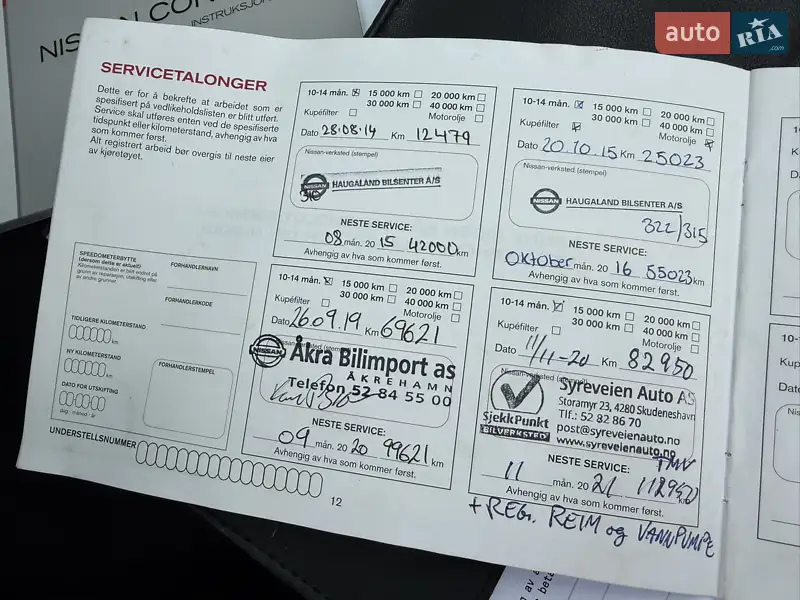 NISSAN CON
INSTRUKSJON
auto RIA
.com
SERVICETALONGER
Dette er for å bekrefte at arbeidet som er
spesifisert på vedlikeholdslisten er blitt utført.
Service skal utføres enten ved de spesifiserte
tidspunkt eller kilometerstand, avhengig av hva
som kommer først.
Alt registrert arbeid bør overgis til neste eier
av kjøretøyet.
10-14 mån. 15 000 km 20 000 km
30 000 km 40 000 km
Kupéfilter Motorolje
Dato 28.08.14 Km 12479
Nissan-verksted (stempel)
NISSAN HAUGALAND BILSENTER A/S
316
NESTE SERVICE:
08 mån. 20 15 42000 km
Avhengig av hva som kommer først.
10-14 mån. 15 000 km 20 000 km
30 000 km 40 000 km
Kupéfilter Motorolje
Dato 20.10.15 Km 25023
Nissan-verksted (stempel)
NISSAN HAUGALAND BILSENTER A/S
322/315
NESTE SERVICE:
Oktober mån. 20 16 55023 km
Avhengig av hva som kommer først.
SPEEDOMETERBYTTE
(dersom dette er aktuelt)
Kilometerstanden er blitt endret på
grunn av reparasjon, utskifting eller
av andre grunner
FORHANDLERNAVN
FORHANDLERKODE
TIDLIGERE KILOMETERSTAND
km
NY KILOMETERSTAND
km
DATO FOR UTSKIFTING
dag - måned - år
FORHANDLERSTEMPEL
UNDERSTELLSNUMMER
10-14 mån. 15 000 km 20 000 km
30 000 km 40 000 km
Kupéfilter Motorolje
Dato 26.09.19 Km 69621
NISSAN Åkra Bilimport as
ÅKREHAMN
Telefon 52 84 55 00
NESTE SERVICE:
09 mån. 20 20 99621 km
Avhengig av hva som kommer først.
10-14 mån. 15 000 km 20 000 km
30 000 km 40 000 km
Kupéfilter Motorolje
Dato 11/11-20 Km 82950
Nissan-verksted (stempel)
Syreveien Auto AS
Storamyr 23, 4280 Skudeneshavn
Tlf.: 52 82 86 70
post@syreveienauto.no
www.syreveienauto.no
SjekkPunkt
BILVERKSTED
NESTE SERVICE:
11 mån. 20 21 112950 km
Avhengig av hva som kommer først.
+ REG. REIM og VANNPUMPE
12